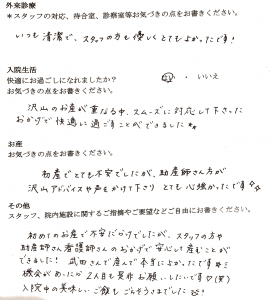 外来診療
*スタッフの対応、待合室、診察室等お気づきの点をお書きください。
いつも清潔で、スタッフの方も優しくとてもよかったです!
入院生活
快適にお過ごしになれましたか? はい ・ いいえ
お気づきの点をお書きください。
沢山のお産が重なる中、スムーズに対応して下さった
おかげで快適に過ごすことができました
お産
お気づきの点をお書きください。
初産でとても不安でしたが、助産師さん方が
沢山アドバイスや声をかけて下さり とても心強かったです
その他
スタッフ、院内施設に関するご指摘やご要望などご自由にお書きください。
初めてのお産で不安だらけでしたが、スタッフの方や
助産師さん看護師さんのおかげで安心して産むことが
できました! 武田さんで産んで本当によかったです
機会があったら2人目も是非お願いしたいです(笑)
入院中の美味しいご飯もごちそうさまでした